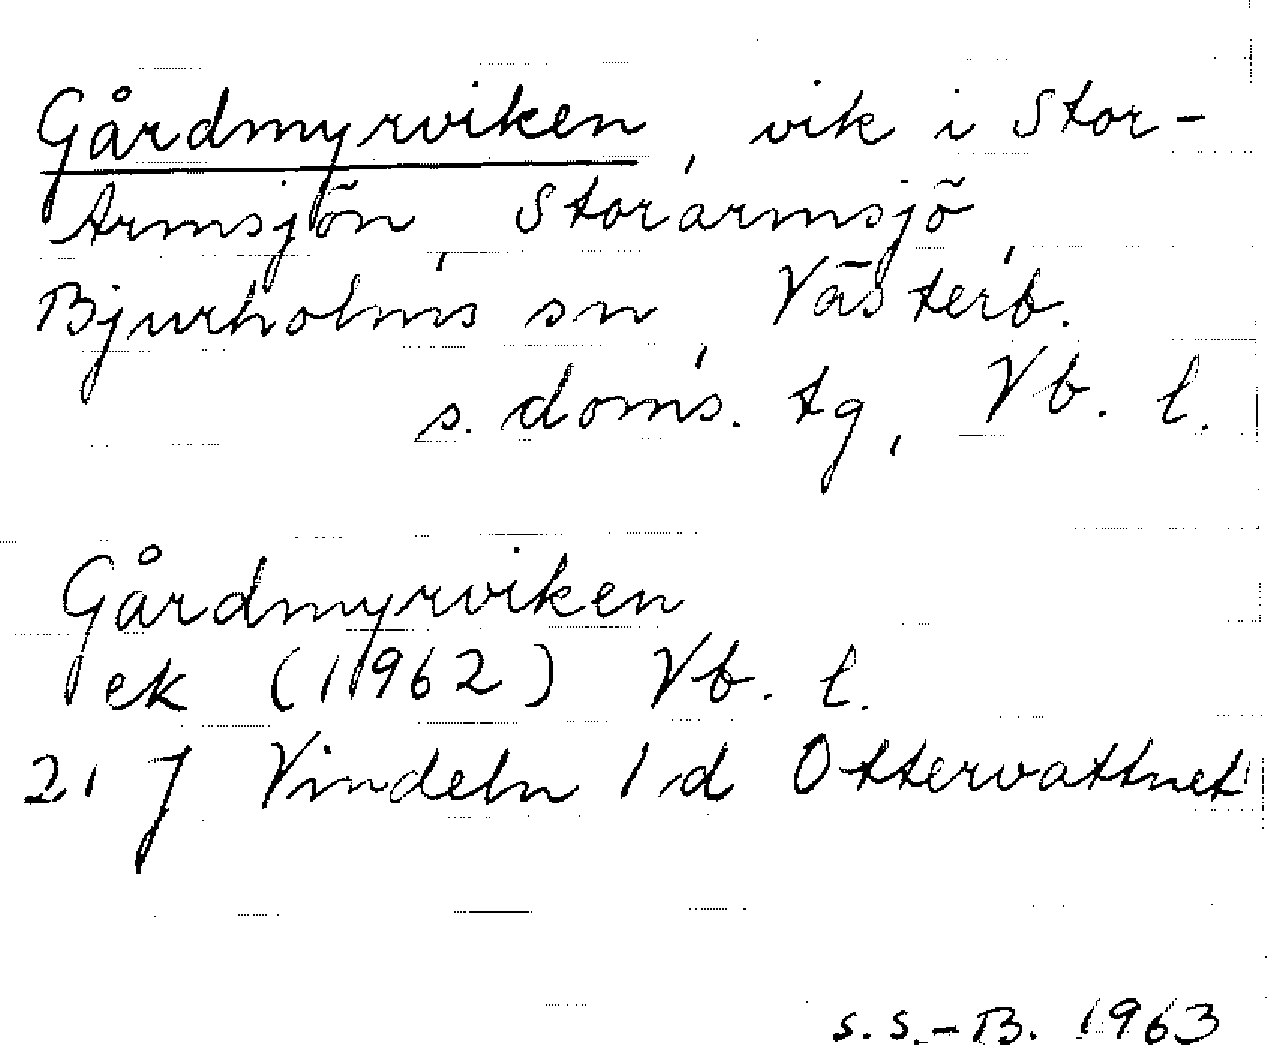 Gårdmyrviken, vik i Stor-
Armsjön, Storarmsjö,
Bjurholms sn, Västerb.
s. doms. tg, Vb. l.
Gårdmyrviken
ek (1962) Vb. l.
21 J Vindeln 1d Ottervattnet
S.S.-B. 1963